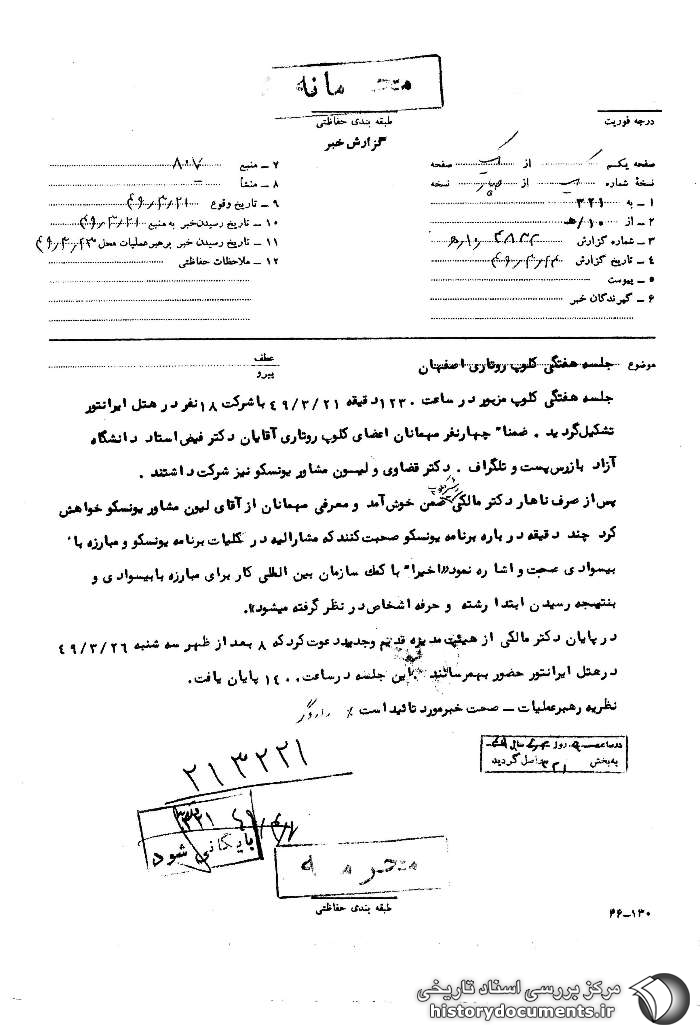 محرمانه
طبقه بندی حفاظتی
درجه فوریت
گزارش خبر
صفحه یکم از صفحه
نسخهٔ شماره از نسخه
۱ ـ به ۳۲۱
۲ ـ از ۱۰/هـ
۳ ـ شماره گزارش
۴ ـ تاریخ گزارش
۵ ـ پیوست
۶ ـ گیرندگان خبر
۷ ـ منبع ۸۰۷
۸ ـ منشأ
۹ ـ تاریخ وقوع ۴۹/۳/۲۱
۱۰ ـ تاریخ رسیدن خبر به منبع ۴۹/۳/۲۱
۱۱ ـ تاریخ رسیدن خبر برهبر عملیات محل ۴۹/۳/۲۳
۱۲ ـ ملاحظات حفاظتی
موضوع جلسه هفتگی کلوپ روتاری اصفهان
عطف
پیرو
جلسه هفتگی کلوپ مزبور در ساعت ۱۲۳۰ دقیقه ۴۹/۳/۲۱ با شرکت ۱۸ نفر در هتل ایرانتور
تشکیل گردید . ضمنا" چهارنفر میهمانان اعضای کلوپ روتاری آقایان دکتر فیض استاد دانشگاه
آزاد بازرس پست و تلگراف . دکتر قضاوی و لیسون مشاور یونسکو نیز شرکت داشتند .
پس از صرف ناهار دکتر مالکی ضمن خوش آمد و معرفی میهمانان از آقای لیون مشاور یونسکو خواهش
کرد چند دقیقه در باره برنامه یونسکو صحبت کنند که مشارالیه در کلیات برنامه یونسکو و مبارزه با
بیسوادی صحبت و اشاره نمود«اخیرا" با کمک سازمان بین المللی کار برای مبارزه با بیسوادی و
بنتیجه رسیدن ابتدا رشته و حرفه اشخاص در نظر گرفته میشود».
در پایان دکتر مالکی از هیئت مدیره قدیم و جدید دعوت کرد که ۸ بعد از ظهر سه شنبه ۴۹/۳/۲۶
در هتل ایرانتور حضور بهم رسانند این جلسه در ساعت ۱۴۰۰ پایان یافت.
نظریه رهبر عملیات ـ صحت خبر مورد تائید است
در ساعت روز سال
به بخش ۳۲۱ واصل گردید
۲۱۳۲۲۱
۳۲۱
بایگانی شود
محرمانه
طبقه بندی حفاظتی
۴۶ـ۱۳۰
مرکز بررسی اسناد تاریخی
historydocuments.ir